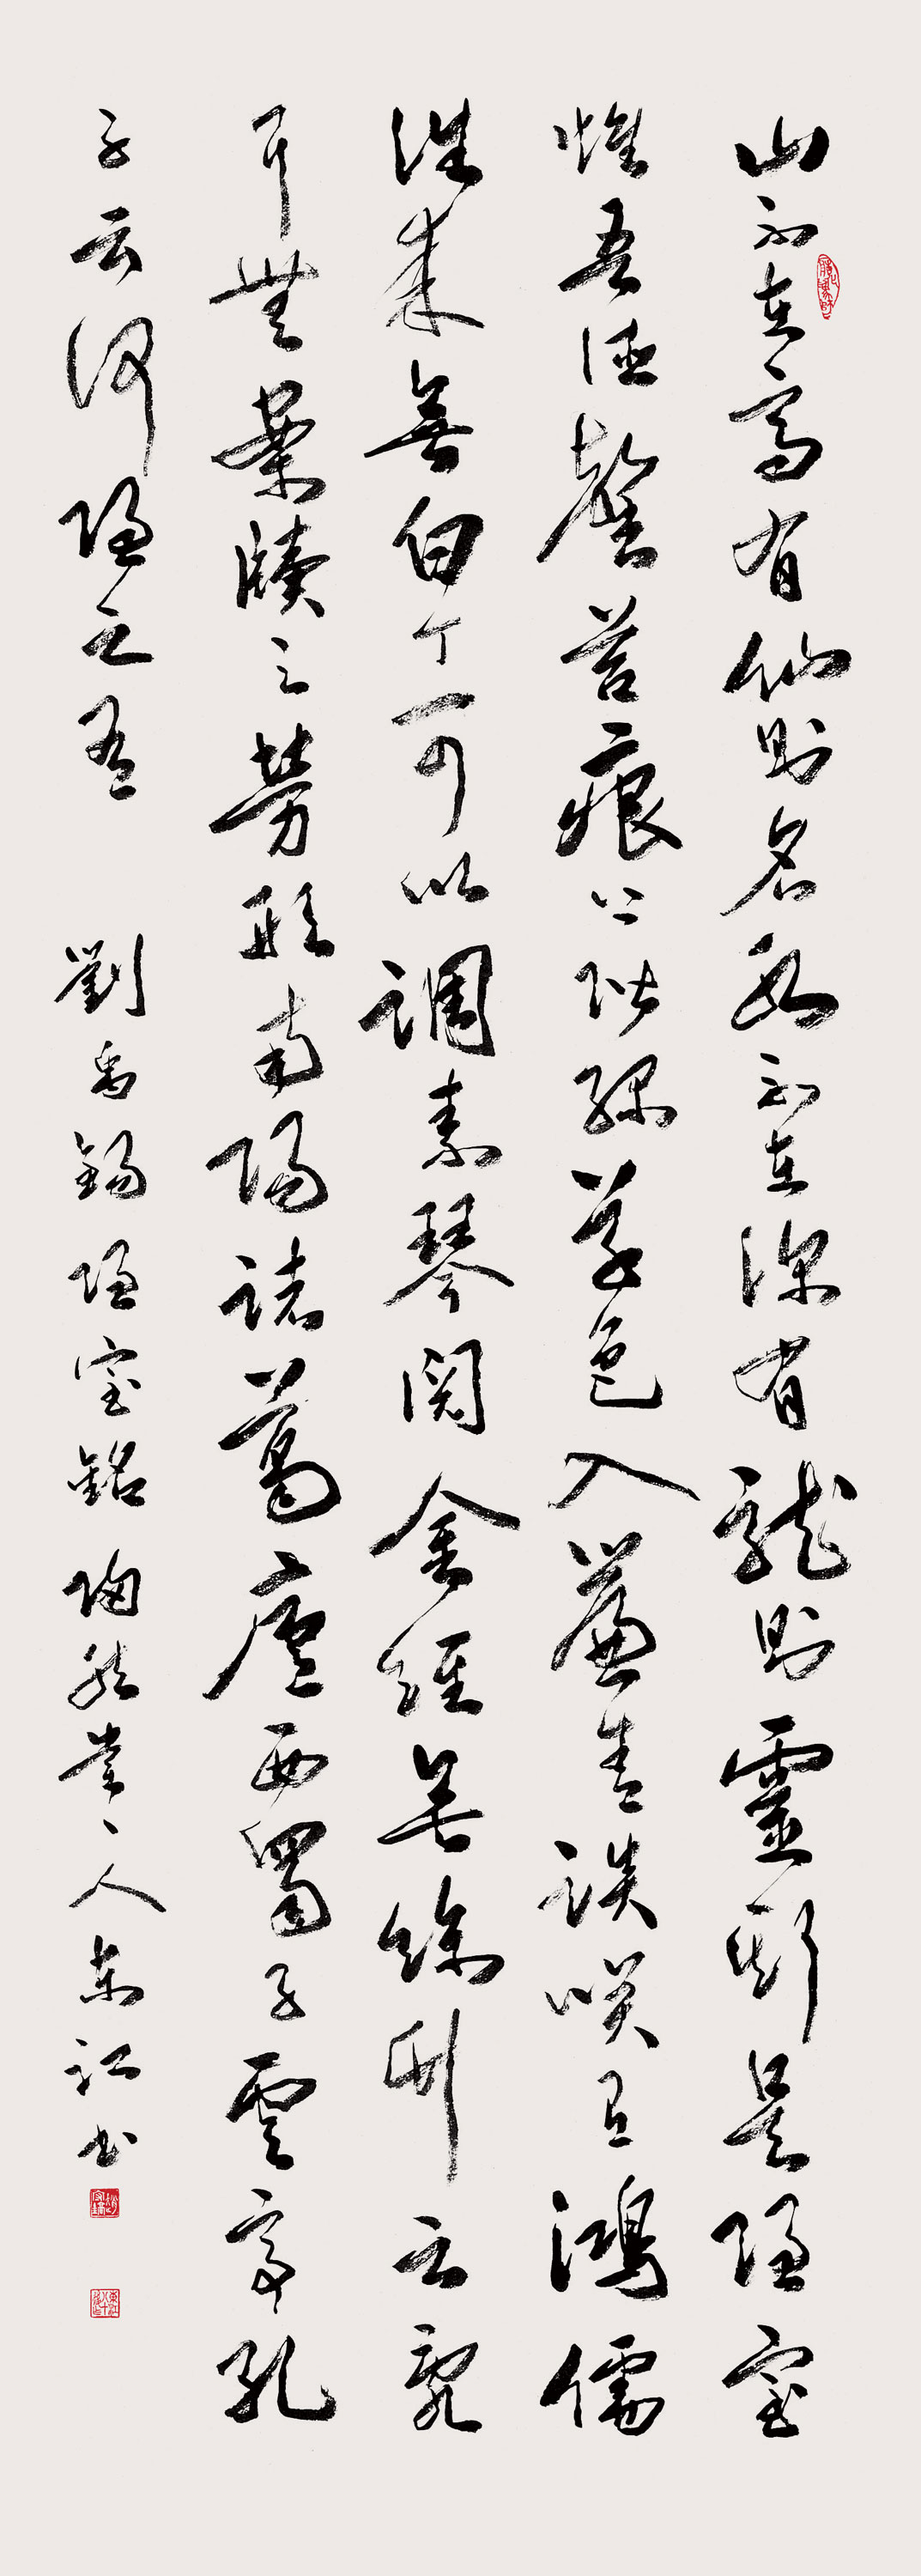 山不在高有仙則名水不在深有龍則靈斯是陋室
惟吾德馨苔痕上階綠草色入簾青談咲有鴻儒
往來無白丁可以調素琴閱金經無絲竹之亂
耳無案牘之勞形南陽諸葛廬西蜀子雲亭孔
子云何陋之有 劉禹錫陋室銘 陶然堂主人東江书